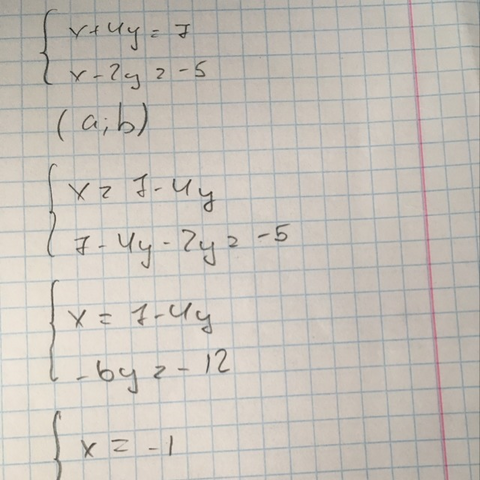 x+4y=7
x-2y=-5
(a;b)
x=7-4y
7-4y-2y=-5
x=7-4y
-6y=-12
x=-1